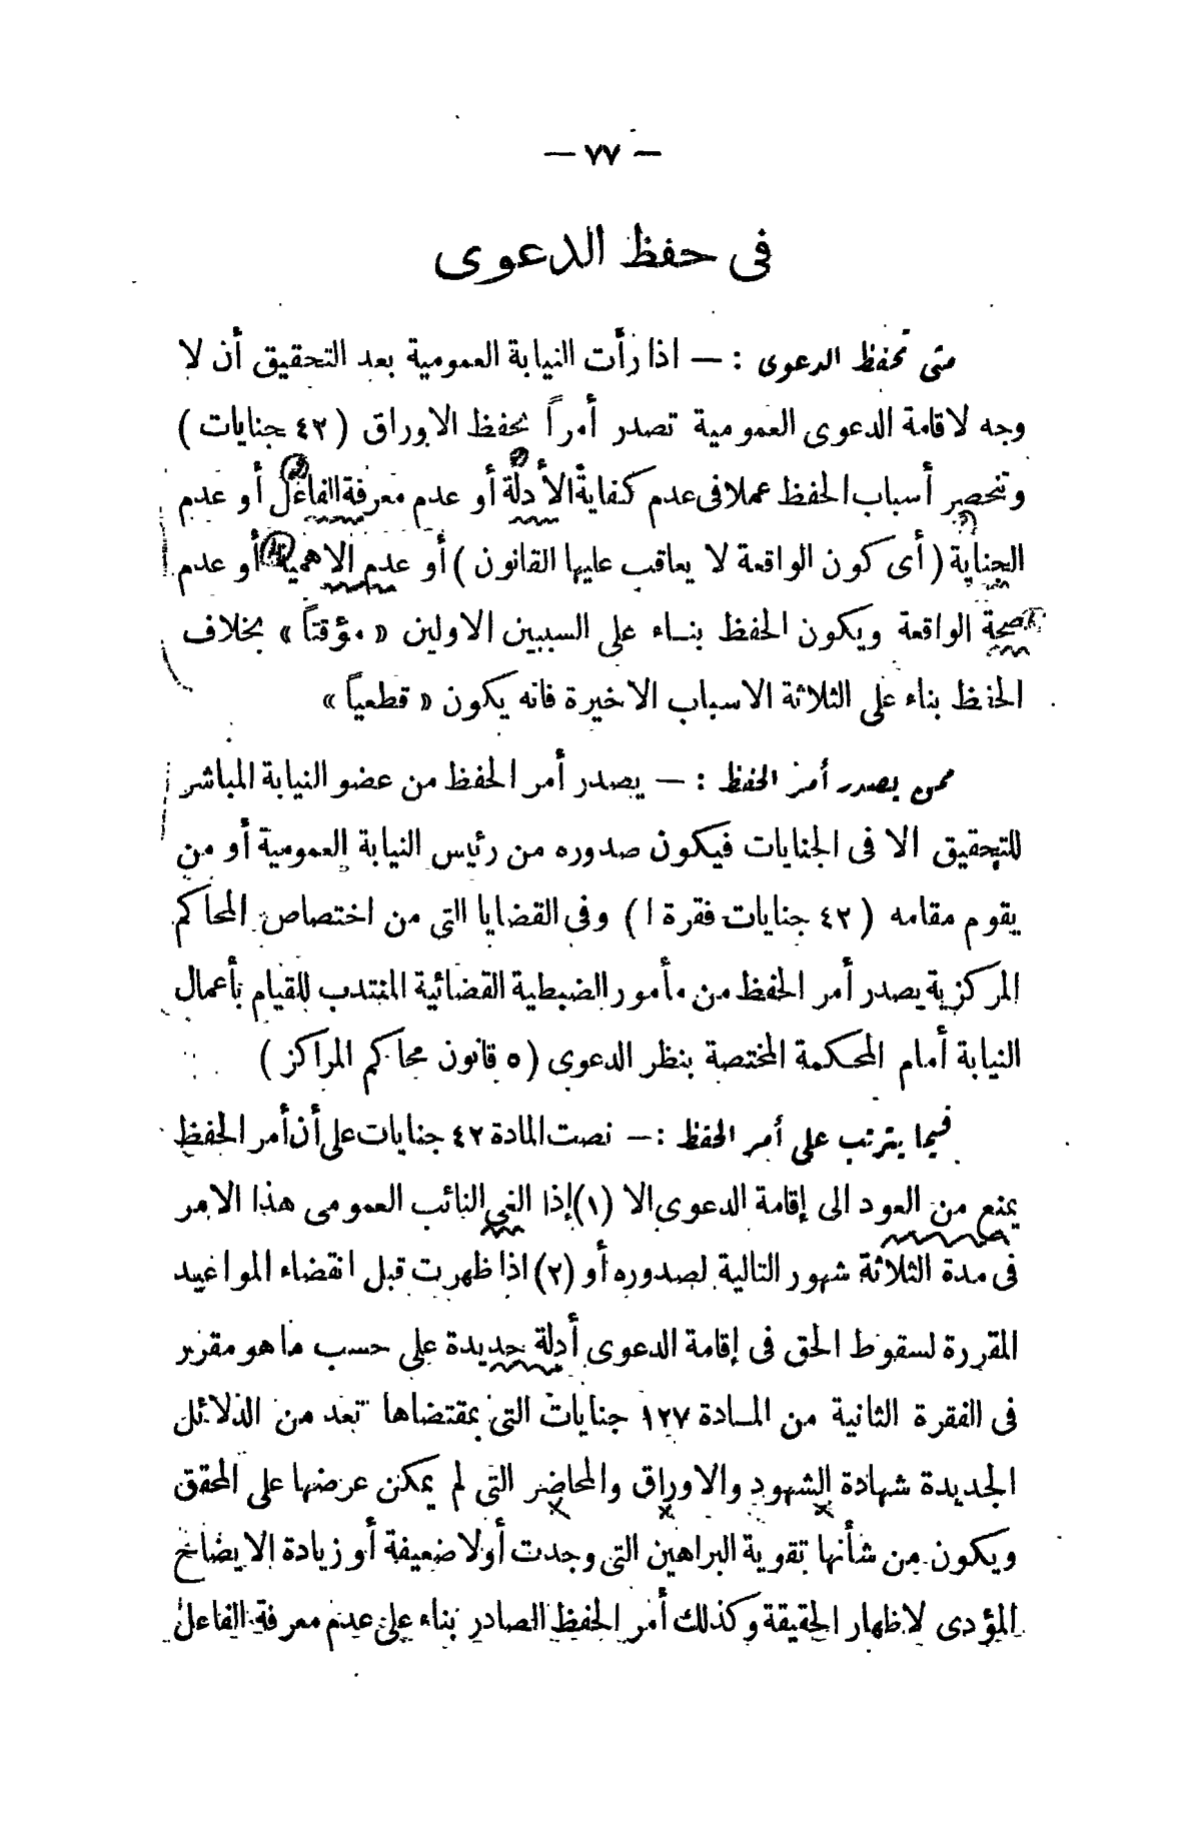 — ٧٧ —
فى حفظ الدعوى
متى تحفظ الدعوى : — اذا رأت النيابة العمومية بعد التحقيق أن لا
وجه لاقامة الدعوى العمومية تصدر أمراً بحفظ الاوراق ( ٤٢ جنايات )
وتنحصر أسباب الحفظ عملا فى عدم كفاية الأدلة أو عدم معرفة الفاعل أو عدم
الجناية ( أى كون الواقعة لا يعاقب عليها القانون ) أو عدم الاهمية أو عدم
صحة الواقعة ويكون الحفظ بناء على السببين الاولين « مؤقتاً » بخلاف
الحفظ بناء على الثلاثة الاسباب الاخيرة فانه يكون « قطعياً »
ممن يصدر أمر الحفظ : — يصدر أمر الحفظ من عضو النيابة المباشر
للتحقيق الا فى الجنايات فيكون صدوره من رئيس النيابة العمومية أو من
يقوم مقامه ( ٤٢ جنايات فقرة ١ ) وفى القضايا التى من اختصاص المحاكم
المركزية يصدر أمر الحفظ من مأمور الضبطية القضائية المنتدب للقيام بأعمال
النيابة أمام المحكمة المختصة بنظر الدعوى ( ٥ قانون محاكم المراكز )
فيما يترتب على أمر الحفظ : — نصت المادة ٤٢ جنايات على أن أمر الحفظ
يمنع من العود الى إقامة الدعوى الا (١) إذا الغى النائب العمومى هذا الامر
فى مدة الثلاثة شهور التالية لصدوره أو (٢) اذا ظهرت قبل انقضاء المواعيد
المقررة لسقوط الحق فى إقامة الدعوى أدلة جديدة على حسب ما هو مقرر
فى الفقرة الثانية من المادة ١٢٧ جنايات التى بمقتضاها تعد من الدلائل
الجديدة شهادة الشهود والاوراق والمحاضر التى لم يمكن عرضها على المحقق
ويكون من شأنها تقوية البراهين التى وجدت أولا ضعيفة أو زيادة الايضاح
المؤدى لاظهار الحقيقة وكذلك أمر الحفظ الصادر بناء على عدم معرفة الفاعل